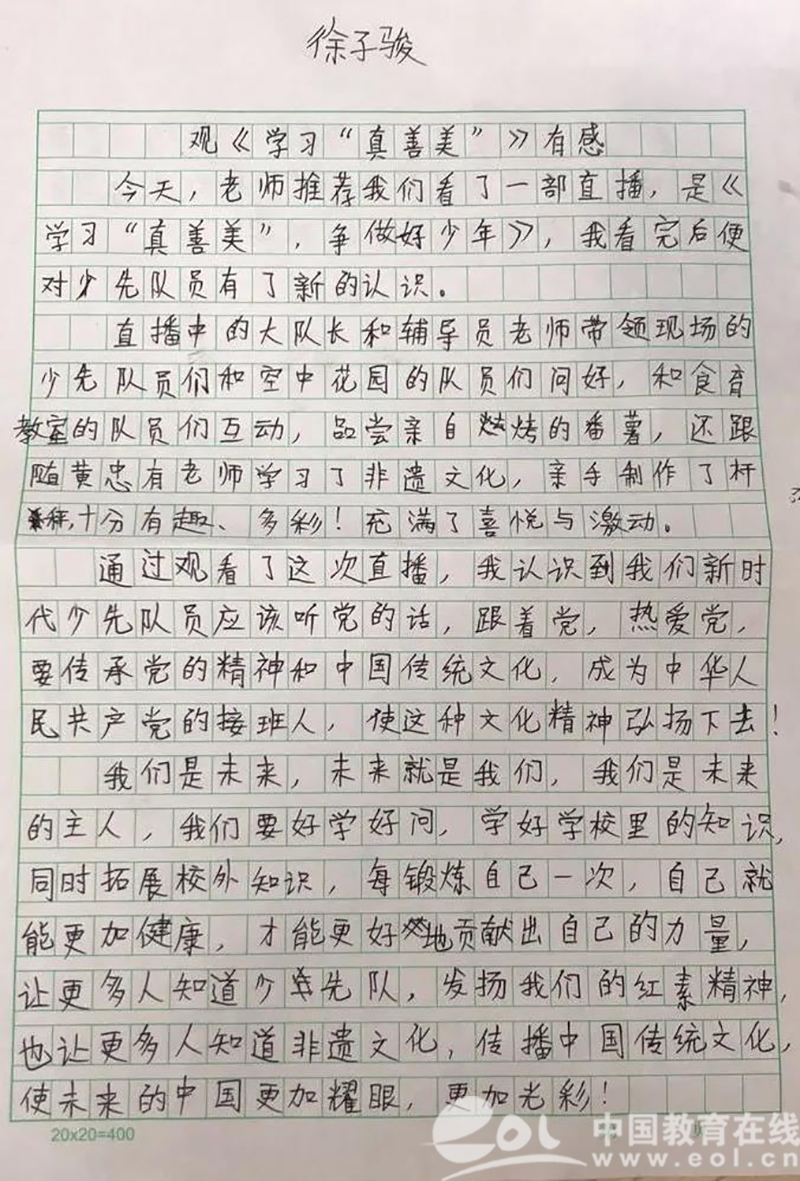 徐子骏
观《学习“真善美”》有感
今天，老师推荐我们看了一部直播，是《
学习“真善美”，争做好少年》，我看完后便
对少先队员有了新的认识。
直播中的大队长和辅导员老师带领现场的
少先队员们和空中花园的队员们问好，和食育
教室的队员们互动，品尝亲自烤的番薯，还跟
随黄忠有老师学习了非遗文化，亲手制作了杆
秤，十分有趣、多彩！充满了喜悦与激动。
通过观看了这次直播，我认识到我们新时
代少先队员应该听党的话，跟着党，热爱党，
要传承党的精神和中国传统文化，成为中华人
民共产党的接班人，使这种文化精神弘扬下去！
我们是未来，未来就是我们，我们是未来
的主人，我们要好学好问，学好学校里的知识，
同时拓展校外知识，每锻炼自己一次，自己就
能更加健康，才能更好地贡献出自己的力量，
让更多人知道少先队，发扬我们的红素精神，
也让更多人知道非遗文化，传播中国传统文化，
使未来的中国更加耀眼，更加光彩！
20x20=400
eol 中国教育在线
www.eol.cn